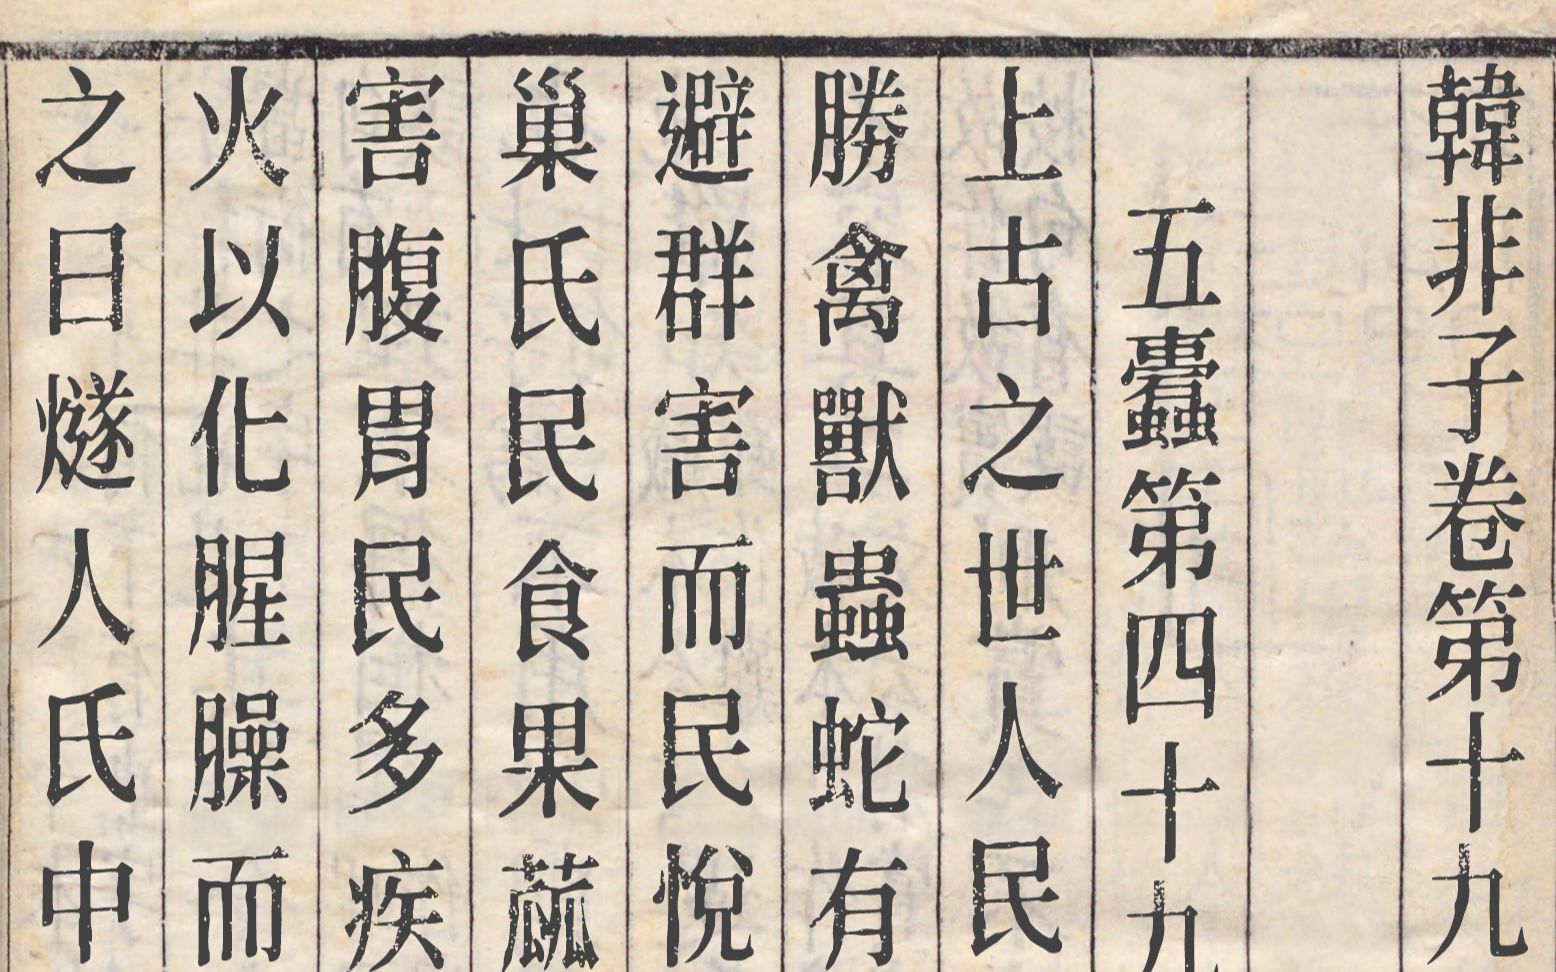 韓非子卷第十九
五蠹第四十九
上古之世人民
勝禽獸蟲蛇有
避群害而民悅
巢氏民食果蓏
害腹胃民多疾
火以化腥臊而
之曰燧人氏中